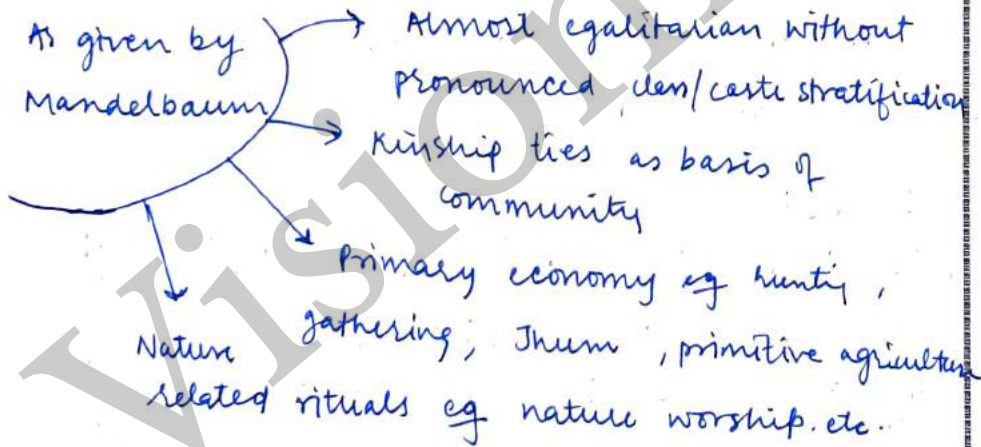 As given by
Mandelbaum
Almost egalitarian without
pronounced class/caste stratification
Kinship ties as basis of
community
Primary economy eg hunting,
gathering, Jhum, primitive agriculture
Nature
related rituals eg nature worship. etc.
Vision